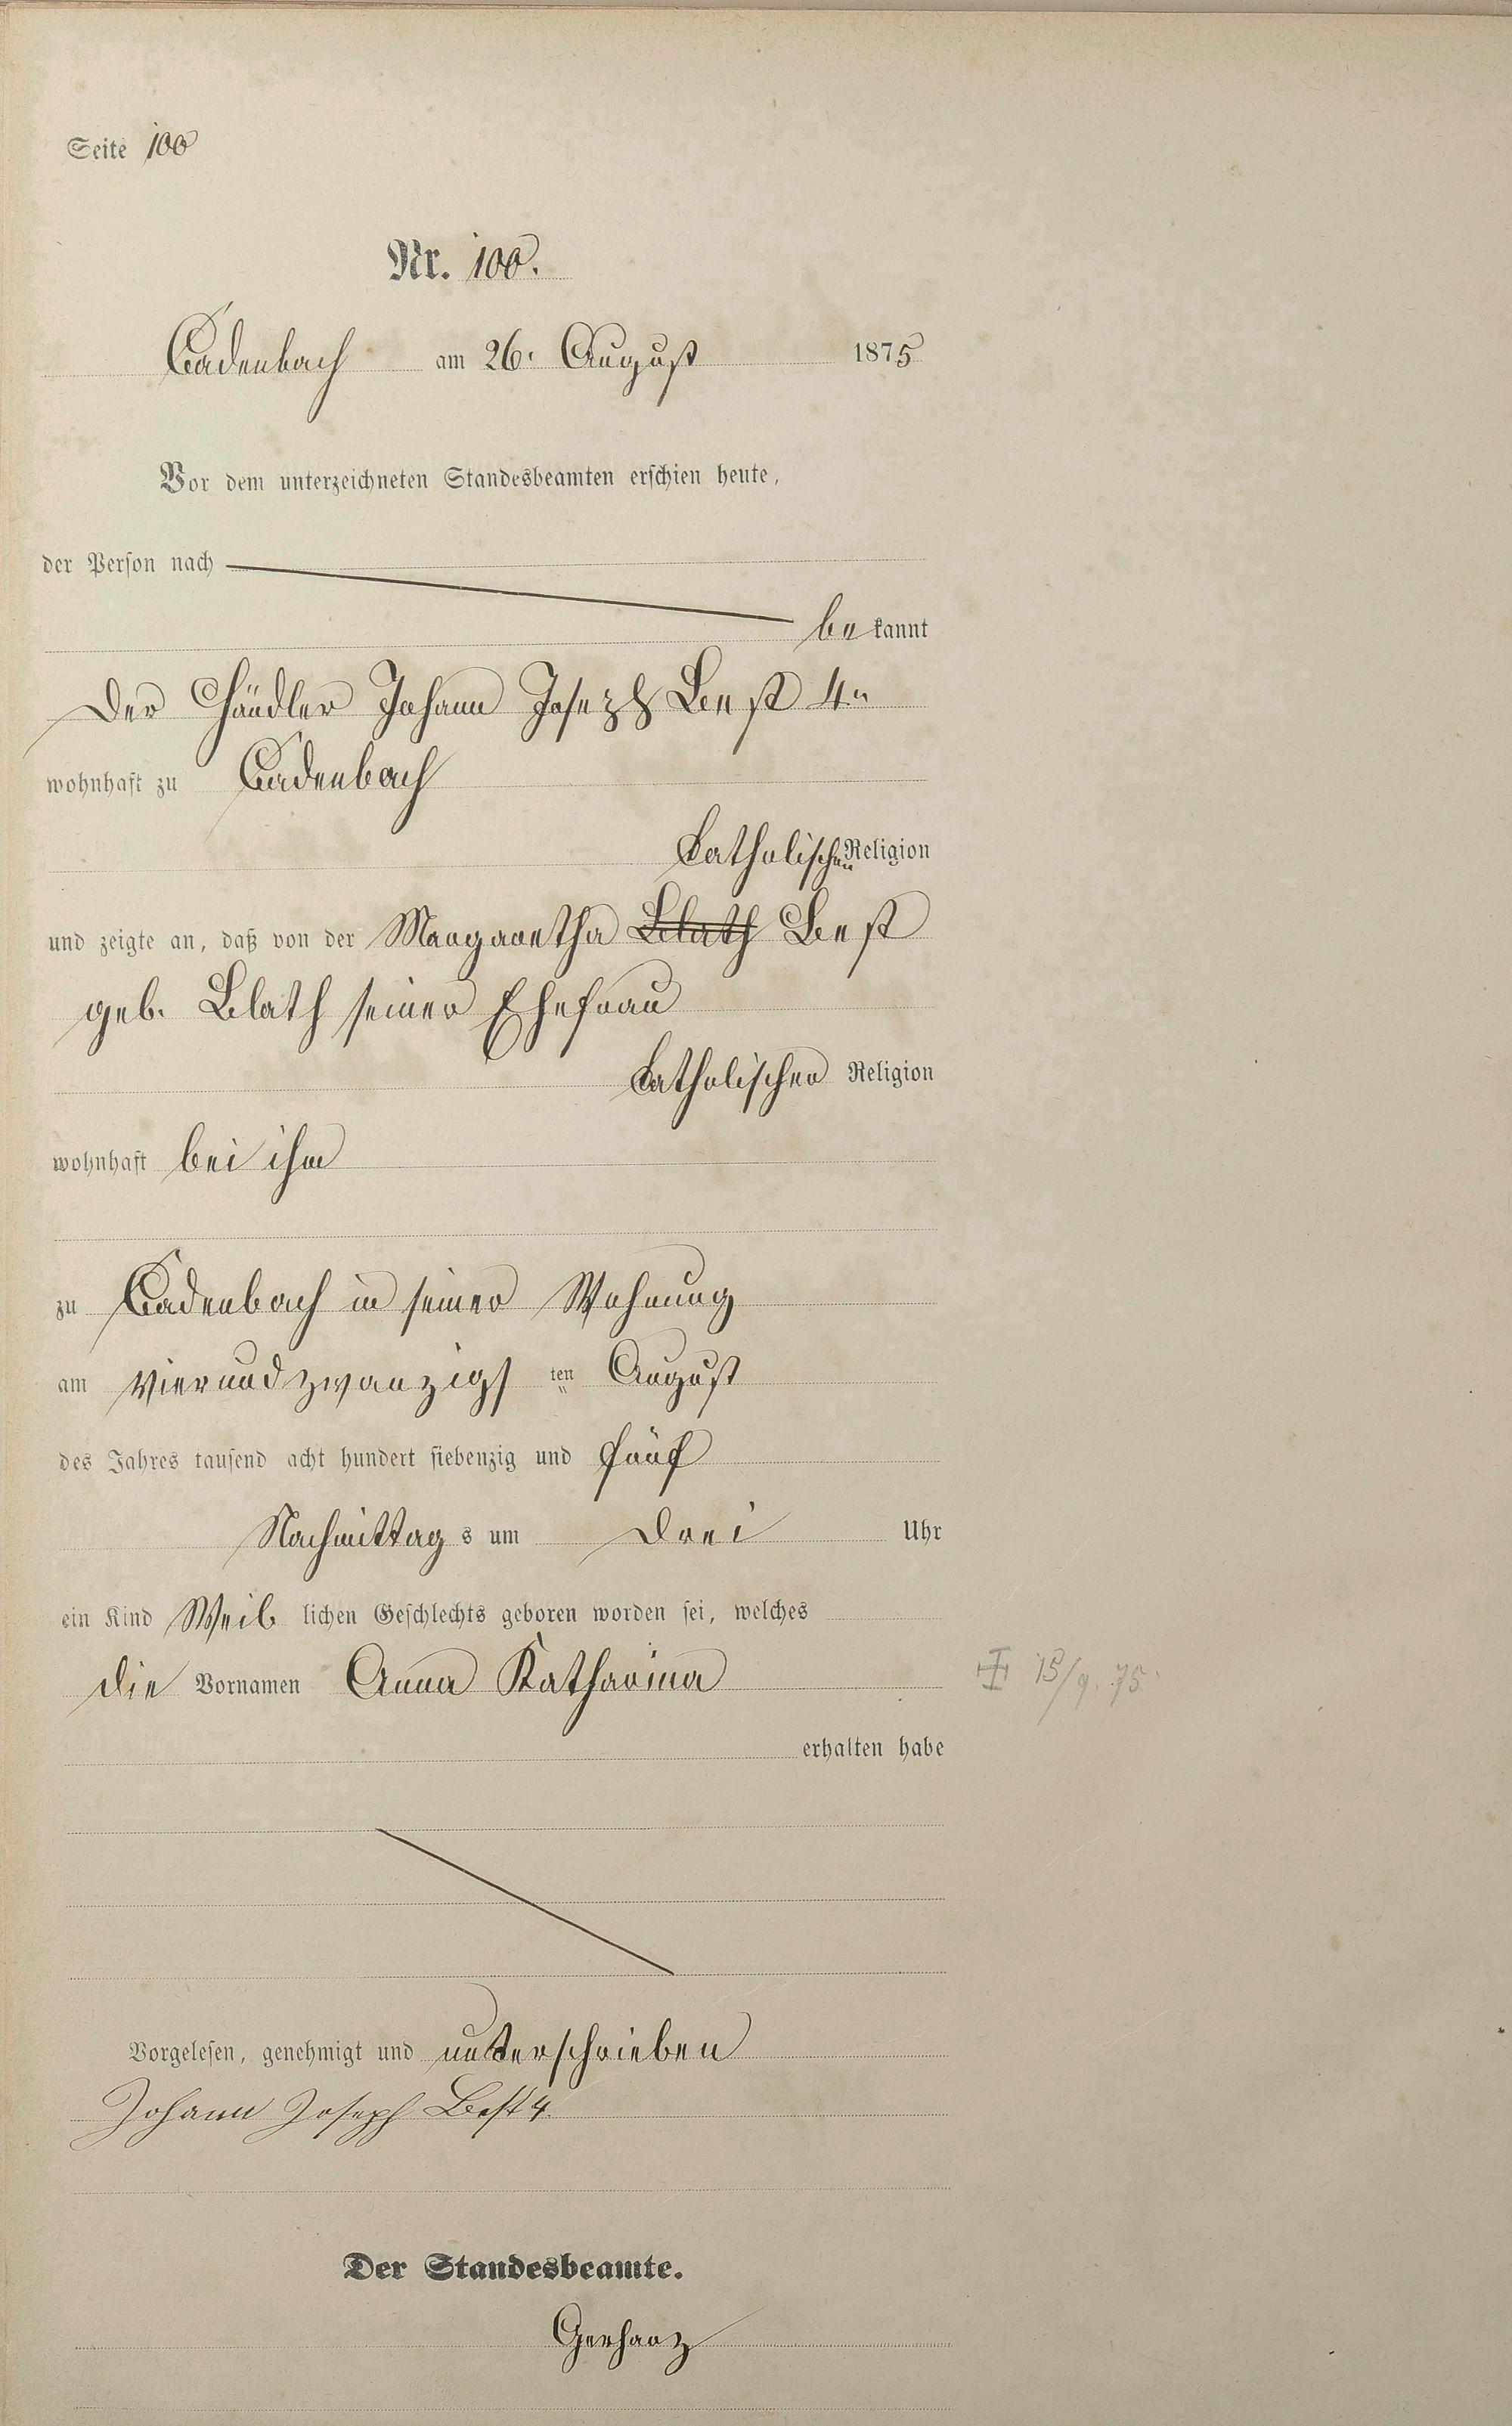 Seite 100
Nr. 100.
Cadenbach am 26. August 1875
Vor dem unterzeichneten Standesbeamten erschien heute,
der Person nach
be kannt
Der Händler Johann Joseph Best 4.
wohnhaft zu Cadenbach
katholischer Religion
und zeigte an, daß von der Margaretha Blath Best
geb. Blath seiner Ehefrau
katholischer Religion
wohnhaft bei ihm
zu Cadenbach in seiner Wohnung
am vierundzwanzigs ten August
des Jahres tausend acht hundert siebenzig und fünf
Nachmittag s um Drei Uhr
ein Kind Weib lichen Geschlechts geboren worden sei, welches
die Vornamen Anna Katharina
15/9. 75.
erhalten habe
Vorgelesen, genehmigt und unterschrieben
Johann Joseph Best 4.
Der Standesbeamte.
Gerharz